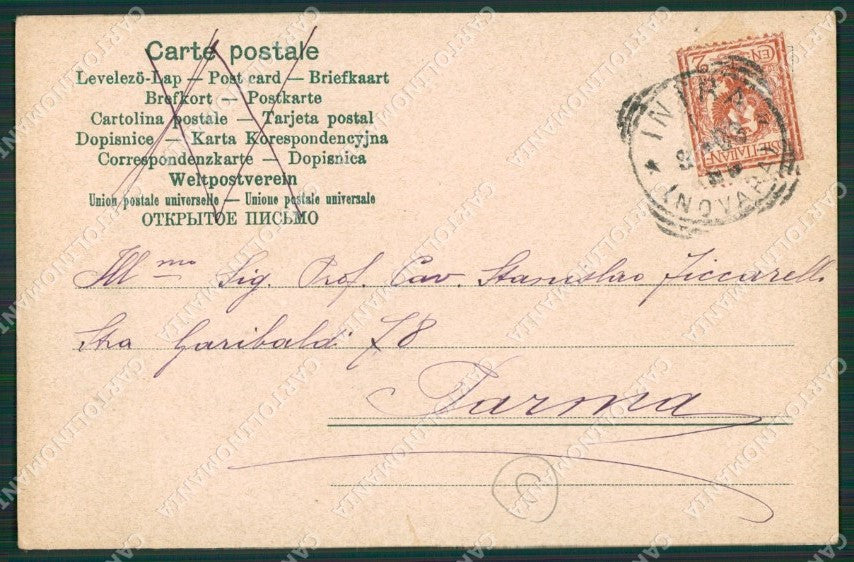 Carte postale
Levelezö-Lap — Post card — Briefkaart
Brefkort — Postkarte
Cartolina postale — Tarjeta postal
Dopisnice — Karta Korespondencyjna
Correspondenzkarte — Dopisnica
Weltpostverein
Union postale universelle — Unione postale universale
ОТКРЫТОЕ ПИСЬМО
INTRA
(NOVARA)
Ill mo Sig. Prof. Cav. Stanislao Ficcarelli
Sta Garibaldi 78
Parma
CARTOLINOMANIA